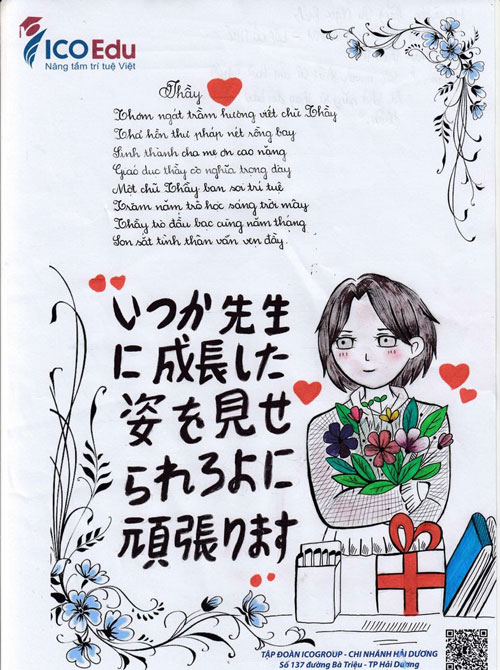 ICOEdu
Nâng tầm trí tuệ Việt
Thầy
Thơm ngát trầm hương viết chữ Thầy
Thả hồn thư pháp nét rồng bay
Sinh thành cha mẹ ơn cao nặng
Giáo dục thầy cô nghĩa trọng dày
Một chữ Thầy ban soi trí tuệ
Trăm năm trò học sáng trời mây
Thầy trò đầu bạc cùng năm tháng
Son sắt tình thân vẫn vẹn đầy.
いつか先生
に成長した
姿を見せ
られろよに
頑張ります
TẬP ĐOÀN ICOGROUP - CHI NHÁNH HẢI DƯƠNG
Số 137 đường Bà Triệu - TP Hải Dương